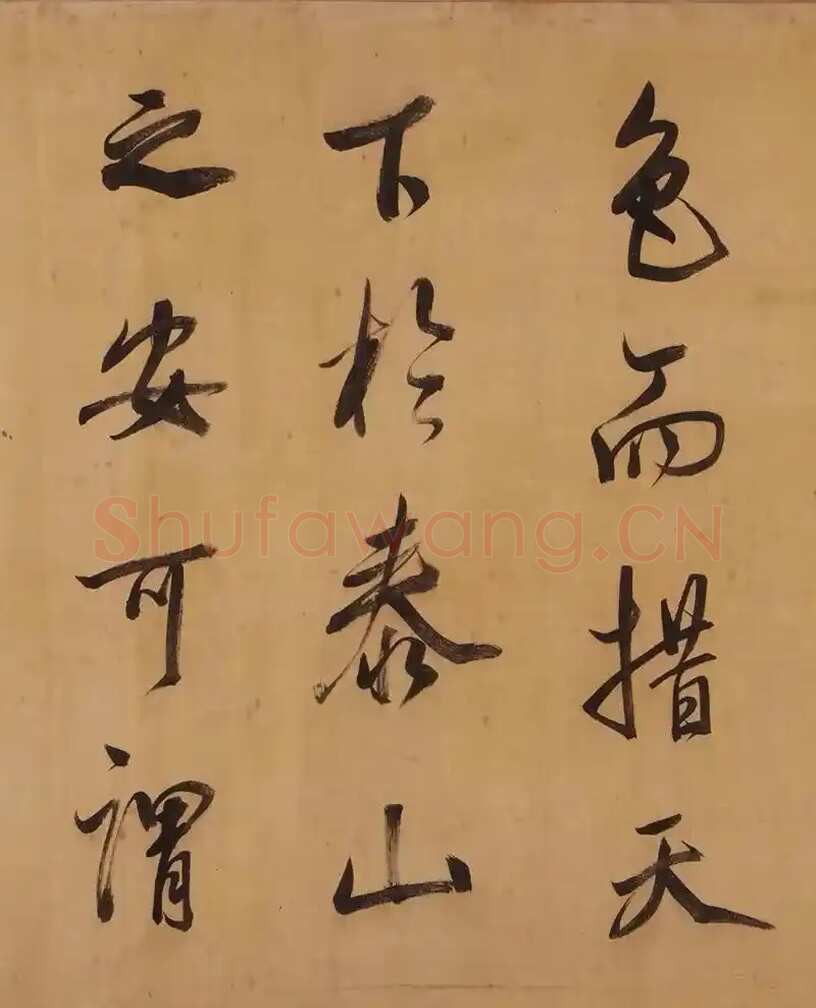 色而措天
下於泰山
之安可謂
Shufawang.CN